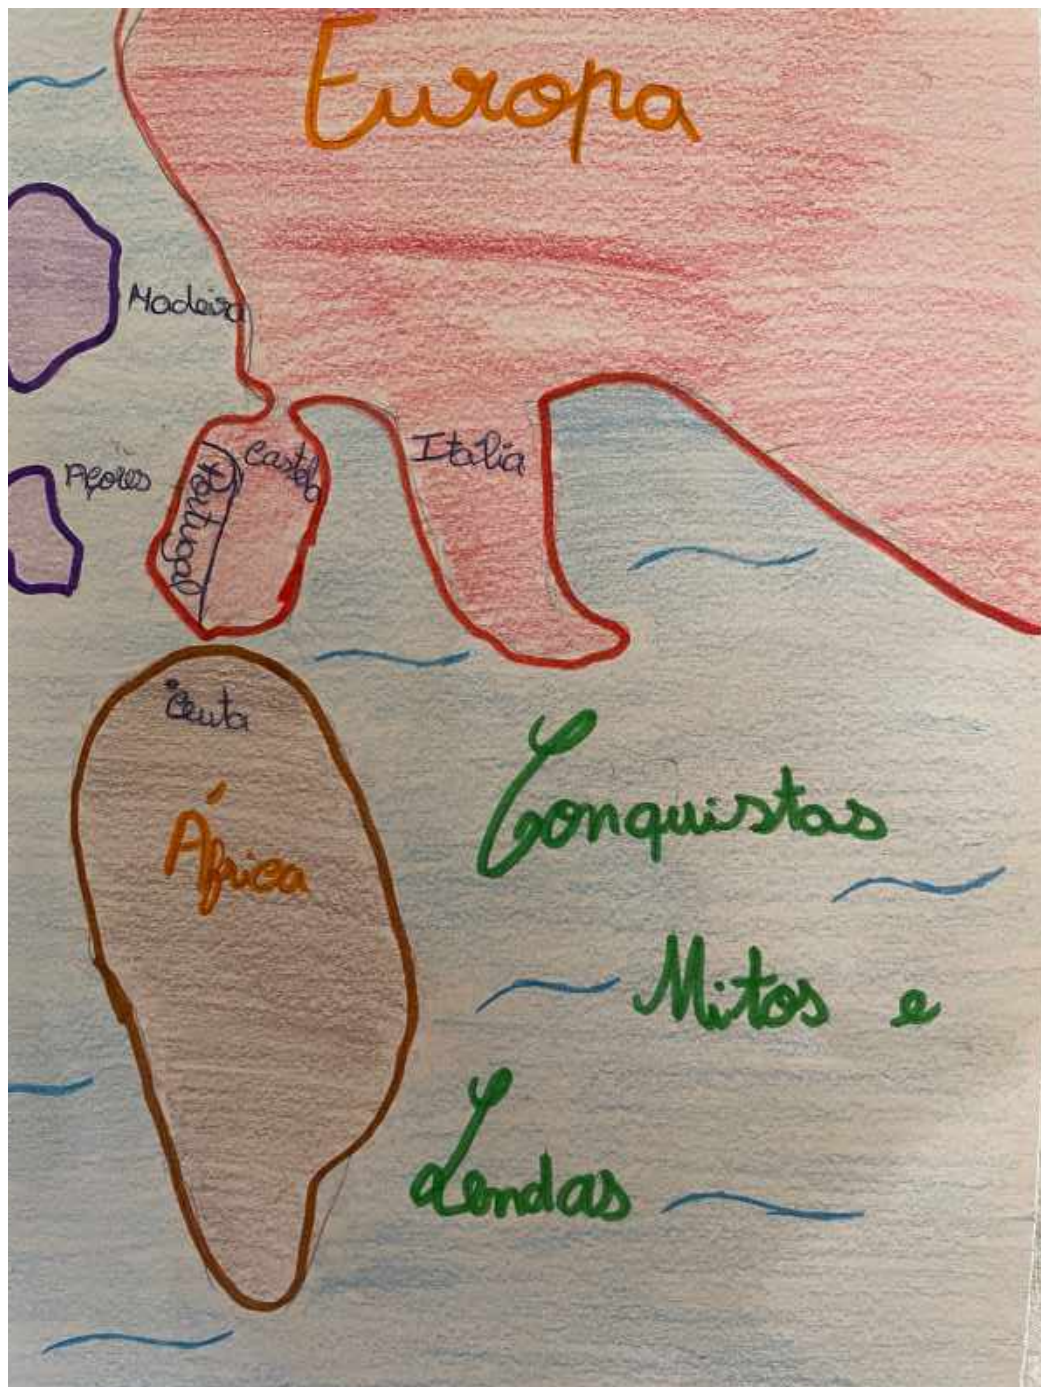 Europa
Madeira
Açores
Portugal
Castela
Itália
Ceuta
África
Conquistas
Mitos e
Lendas